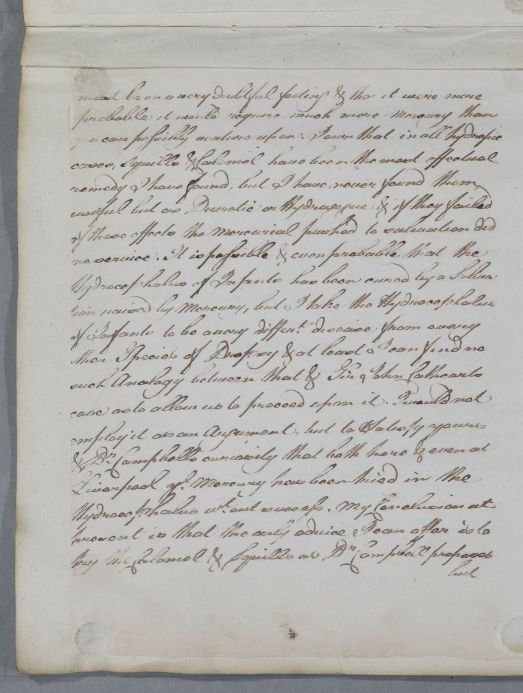 must be on a very doubtful footing & tho it were more
probable it would require much more mercury than
we can possibly venture upon. I own that in all Hydropic
cases, Squills & Calomel have been the most effectual
remedy I have found, but I have never found them
useful but as Diuretic or Hydragogue & if they failed
of these effects the Mercurial pushed to salivation did
no service. It is possible & even probable that the
Hydrocephalus of Infants has been cured by a Saliva
tion raised by Mercury, but I take the Hydrocephalus
of Infants to be a very differt. disease from every
other Species of Dropsy & at least I can find no
such Analogy between that & Sir John Cathcarts
case as to allow us to proceed upon it. I would not
employ it as an Argument, but to Satisfy yours
& Dr. Campbells curiosity that both here & even at
Liverpool ye. Mercury has been tried in the
Hydrocephalus wt.out success. My Conclusion at
present is that the only advice I can offer is to
try the Calomel & Squills as Dr. Campbell proposes
but